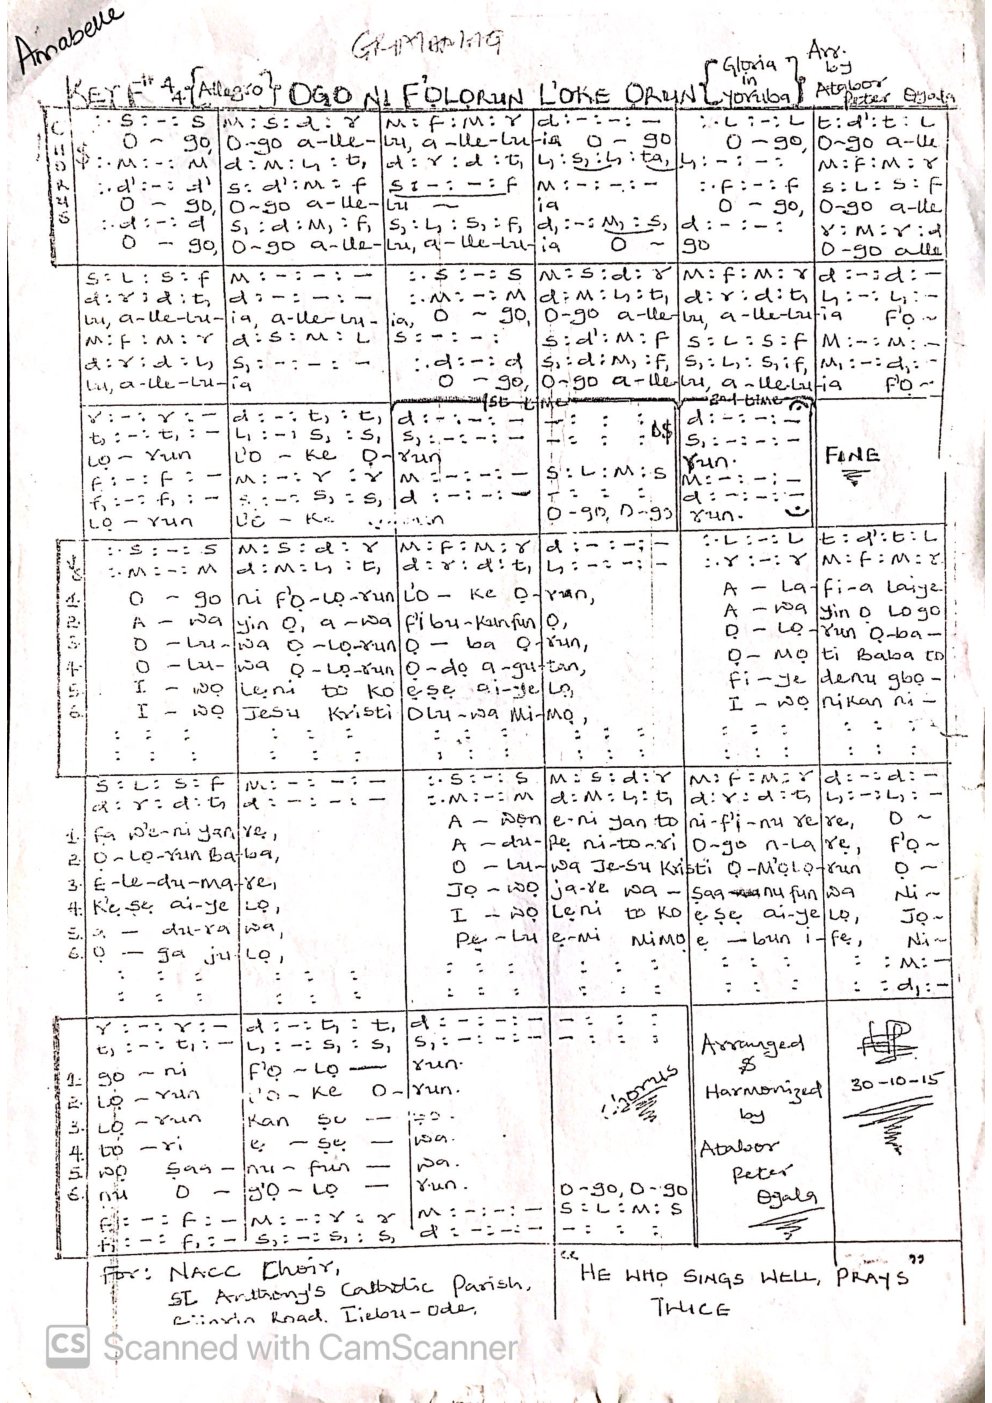 Annabelle
GRAMMING
KEY F# 4/4 {Allegro} OGO NI F'OLORUN L'OKE ORUN {Gloria in Yoruba} Arr. by Atabor Peter Ogala
CHORUS
:. S : - : S | M : S : d : r | M : f : M : r | d : - : - : - | :. L : - : L | t : d' : t : L
O - go, | O-go a-lle- | lu, a-lle-lu- | ia O - go | O - go, | O-go a-lle
:. M : - : M | d : M : L, : t, | d : r : d : t, | L, : S, : L, : ta, | L, : - : - : - | M : f : M : r
:. d' : - : d' | S : d' : M : f | S : - : - : f | M : - : - : - | :. f : - : f | S : L : S : f
O - go, | O-go a-lle- | lu ~ | ia | O - go, | O-go a-lle
:. d : - : d | S, : d : M, : f, | S, : L, : S, : f, | d, : - : M, : S, | d : - : - : | r : M : r : d
O - go, | O-go a-lle- | lu, a-lle-lu- | ia O ~ | go | O-go alle
S : L : S : f | M : - : - : - | :. S : - : S | M : S : d : r | M : f : M : r | d : - : d : -
d : r : d : t, | d : - : - : - | :. M : - : M | d : M : L, : t, | d : r : d : t, | L, : - : L, : -
lu, a-lle-lu- | ia, a-lle-lu- | ia, O ~ go, | O-go a-lle- | lu, a-lle-lu- | ia F'Ọ ~
M : f : M : r | d : S : M : L | S : - : - : | S : d' : M : f | S : L : S : f | M : - : M : -
d : r : d : L, | S, : - : - : - | :. d : - : d | S, : d : M, : f, | S, : L, : S, : f, | M, : - : d, : -
lu, a-lle-lu- | ia | O ~ go, | O-go a-lle- | lu, a-lle-lu- | ia F'Ọ ~
1st time | 2nd time
r : - : r : - | d : - : t, : t, | d : - : - : - | - : : : | d : - : - : -
t, : - : t, : - | L, : - : S, : S, | S, : - : - : - | - : : : D.S | S, : - : - : -
Lọ - run | L'O - ke Ọ- | run | run. | FINE
f : - : f : - | M : - : r : r | M : - : - : - | S : L : M : S | M : - : - : -
f, : - : f, : - | S, : - : S, : S, | d : - : - : - | - : : : | d : - : - : -
Lọ - run | L'O - ke | O-go, O-go | run.
:. S : - : S | M : S : d : r | M : f : M : r | d : - : - : - | :. L : - : L | t : d' : t : L
:. M : - : M | d : M : L, : t, | d : r : d : t, | L, : - : - : - | :. r : - : r | M : f : M : r
1. O - go | ni f'Ọ-lọ-run | L'O - ke Ọ- | run, | A - La- | fi-a laiye
2. A - wa | yin Ọ, a-wa | f'ibu-kunfun | Ọ, | A - wa | yin Ọ Logo
3. O - Lu- | wa Ọ-lọ-run | Ọ - ba Ọ- | run, | Ọ - Lọ- | run Ọ-ba-
4. O - Lu- | wa Ọ-lọ-run | Ọ-dọ a-gu- | tan, | Ọ - Mọ | ti Baba to
5. I - wọ | Leni to ko | ẹsẹ ai-ye | Lọ, | fi - ye | denu gbo-
6. I - wọ | Jesu Kristi | Olu-wa Mi- | mọ, | I - wọ | nikan ni-
S : L : S : f | M : - : - : - | :. S : - : S | M : S : d : r | M : f : M : r | d : - : d : -
d : r : d : t, | d : - : - : - | :. M : - : M | d : M : L, : t, | d : r : d : t, | L, : - : L, : -
1. fa w'e-ni yan | re, | A - wọn | e-ni yan to | ni-f'i-nu re | re, O ~
2. Ọ-Lọ-run Ba- | ba, | A - du- | pe ni-to-ri | O-go n-la | re, F'Ọ ~
3. E-le-du-ma- | re, | O - Lu- | wa Jesu Kris | ti Ọ-M'ọlọ- | run Ọ ~
4. K'ẹsẹ ai-ye | Lọ, | Jọ - wọ | ja-re wa - | Saa-nu fun | wa Ni ~
5. a - du-ra | wa, | I - wọ | Leni to ko | ẹsẹ ai-ye | Lọ, Jọ~
6. Ọ - ga ju | Lọ, | Pe - Lu | e-mi mimọ | e - bun i- | fe, Ni~
: : M : -
: : d, : -
r : - : r : - | d : - : t, : t, | d : - : - : - | - : : :
t, : - : t, : - | L, : - : S, : S, | S, : - : - : - | - : : :
1. go - ni | f'Ọ - Lọ - | run.
2. Lọ - run | L'O - ke Ọ- | run.
3. Lọ - run | kan ṣo -
4. to - ri | ẹ - ṣẹ - | wa.
5. wọ ṣaa- | nu - fun - | wa.
6. nu O - | y'Ọ - Lọ - | run. | O-go, O-go
f : - : f : - | M : - : r : r | M : - : - : - | S : L : M : S
f, : - : f, : - | S, : - : S, : S, | d : - : - : - | - : : :
Chorus
Arranged
&
Harmonized
by
Atabor
Peter
Ogala
30-10-15
For: NACC Choir,
St. Anthony's Catholic Parish,
Road. Ijebu-Ode.
"HE WHO SINGS WELL, PRAYS"
TWICE
CS Scanned with CamScanner